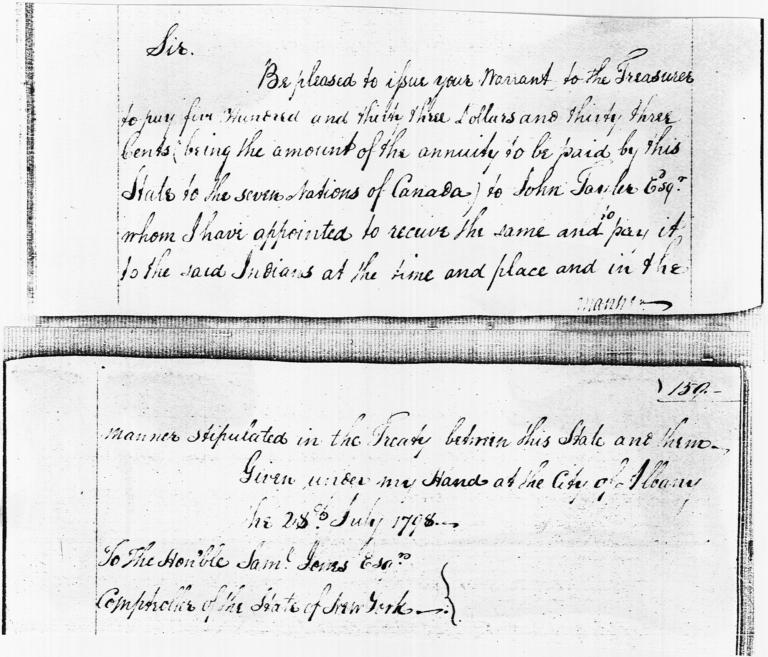 Sir.
Be pleased to issue your Warrant to the Treasurer
to pay five Hundred and thirty three Dollars and thirty three
Cents (being the amount of the annuity to be paid by this
State to the seven Nations of Canada) to John Esqr.
whom I have appointed to receive the same and to pay it
to the said Indians at the time and place and in the
manner
159.
manner stipulated in the Treaty between this State and them.
Given under my Hand at the City of Albany
the 28th July 1798.
To The Honble Saml. Jones Esqr.
Comptroller of the State of New York